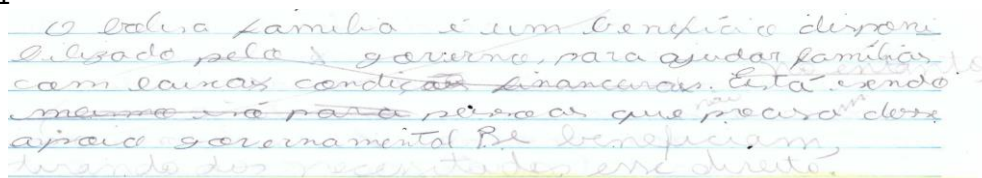 O bolsa família é um benefício disponi
bilizado pelo governo, para ajudar famílias
com baixas condições financeiras. Está sendo
mesmo só para pessoas que precisa desse
apoio governamental se beneficiam,
tirando dos necessitados esse direito.